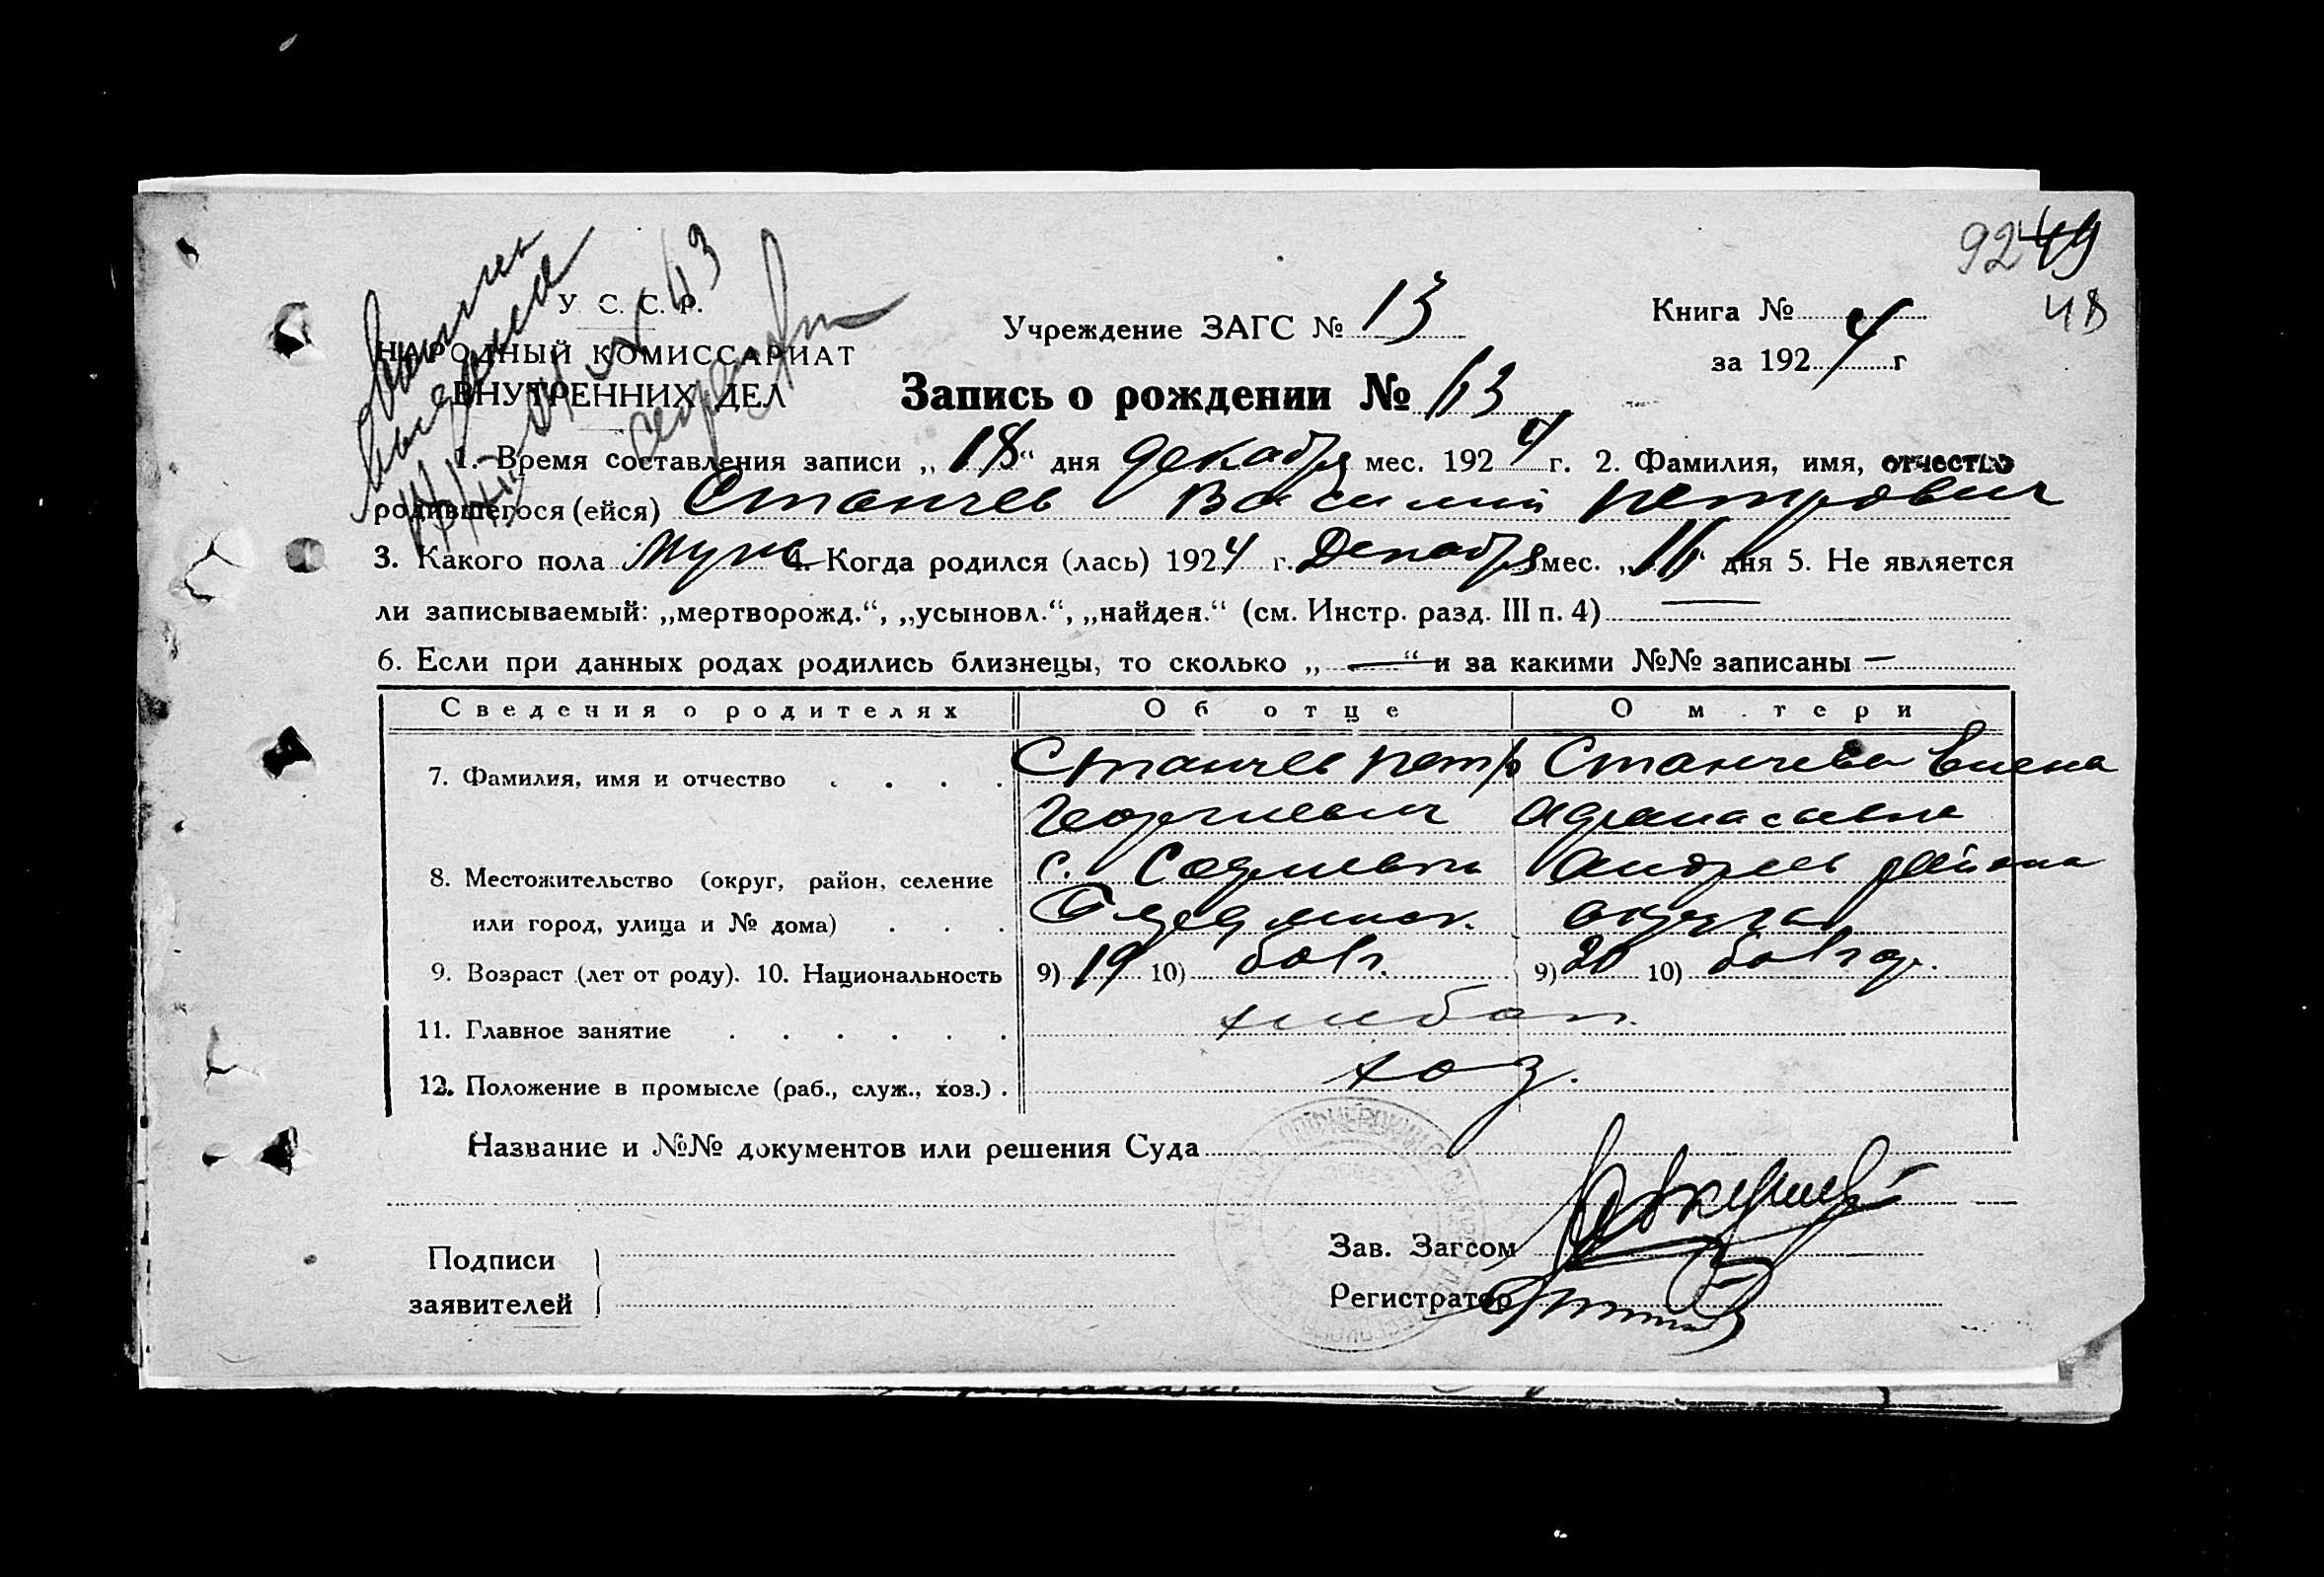 9249
48
У. С. С. Р.
НАРОДНЫЙ КОМИССАРИАТ
ВНУТРЕННИХ ДЕЛ
Учреждение ЗАГС № 13
Книга №
за 1924 г
Запись о рождении № 63
1. Время составления записи „18“ дня декабря мес. 1924 г. 2. Фамилия, имя, отчество
родившегося (ейся) Станчев Василий Петрович
3. Какого пола Муж 4. Когда родился (лась) 1924 г. Декабря мес. „16“ дня 5. Не является
ли записываемый: „мертворожд.“, „усыновл.“, „найден.“ (см. Инстр. разд. III п. 4) —
6. Если при данных родах родились близнецы, то сколько „—“ и за какими №№ записаны —
Сведения о родителях Об отце О м тери
7. Фамилия, имя и отчество Станчев Петр Станчева Елена
Георгиевич Афанасиевна
8. Местожительство (округ, район, селение с. Софиевки Андреев района
или город, улица и № дома) округа
9. Возраст (лет от роду). 10. Национальность 9) 19 10) болг. 9) 20 10) болгар.
11. Главное занятие хлибор.
12. Положение в промысле (раб., служ., хоз.) хоз.
Название и №№ документов или решения Суда
Подписи
заявителей
Зав. Загсом
Регистратор